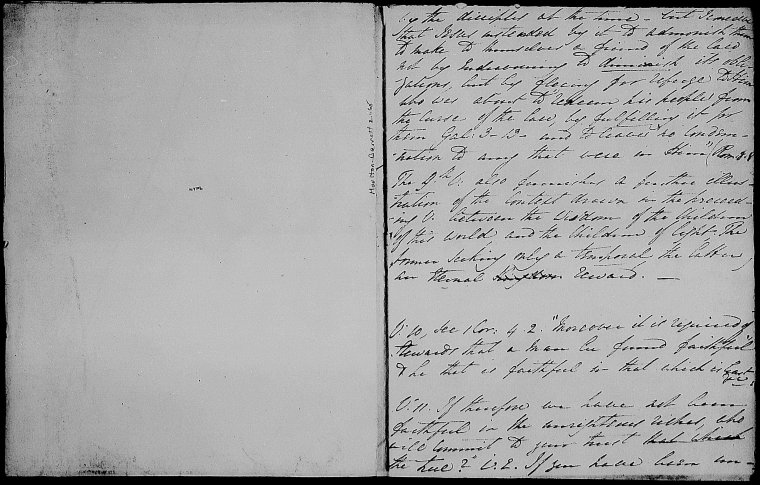 by the disciples at the time - but I consider
that Jesus intended by it to admonish them
to make to themselves a friend of the Law
not by endeavouring to diminish its obli-
gations, but by fleeing for refuge to Him
who was about to redeem his people from
the curse of the law, by fulfilling it for
them Gal: 3-13 - and to leave "no condem-
-nation to any that were in Him" (Rom 8.1
The 9th V. also furnishes a further illus-
tration of the contrast drawn in the preceed-
-ing V. between the wisdom of the Children
of this world, and the Children of light - The
former seeking only a temporal the latter,
an eternal kingdom reward. —
V. 10, See 1 Cor: 4. 2. "Moreover it is required of
Stewards that a man be found faithful"
& he that is faithful in that which is least
V. 11. If therefore we have not been
faithful in the unrighteous riches, who
will commit to your trust that which
the true?" i.e. If you have been un-